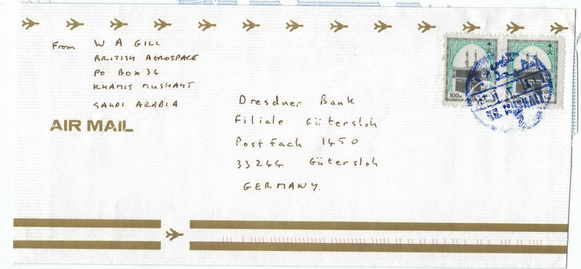 From W A GILL
BRITISH AEROSPACE
PO BOX 34
KHAMIS MUSHAYT
SAUDI ARABIA
AIR MAIL
Dresdner Bank
Filiale Gütersloh
Postfach 1450
33244 Gütersloh
GERMANY.
100